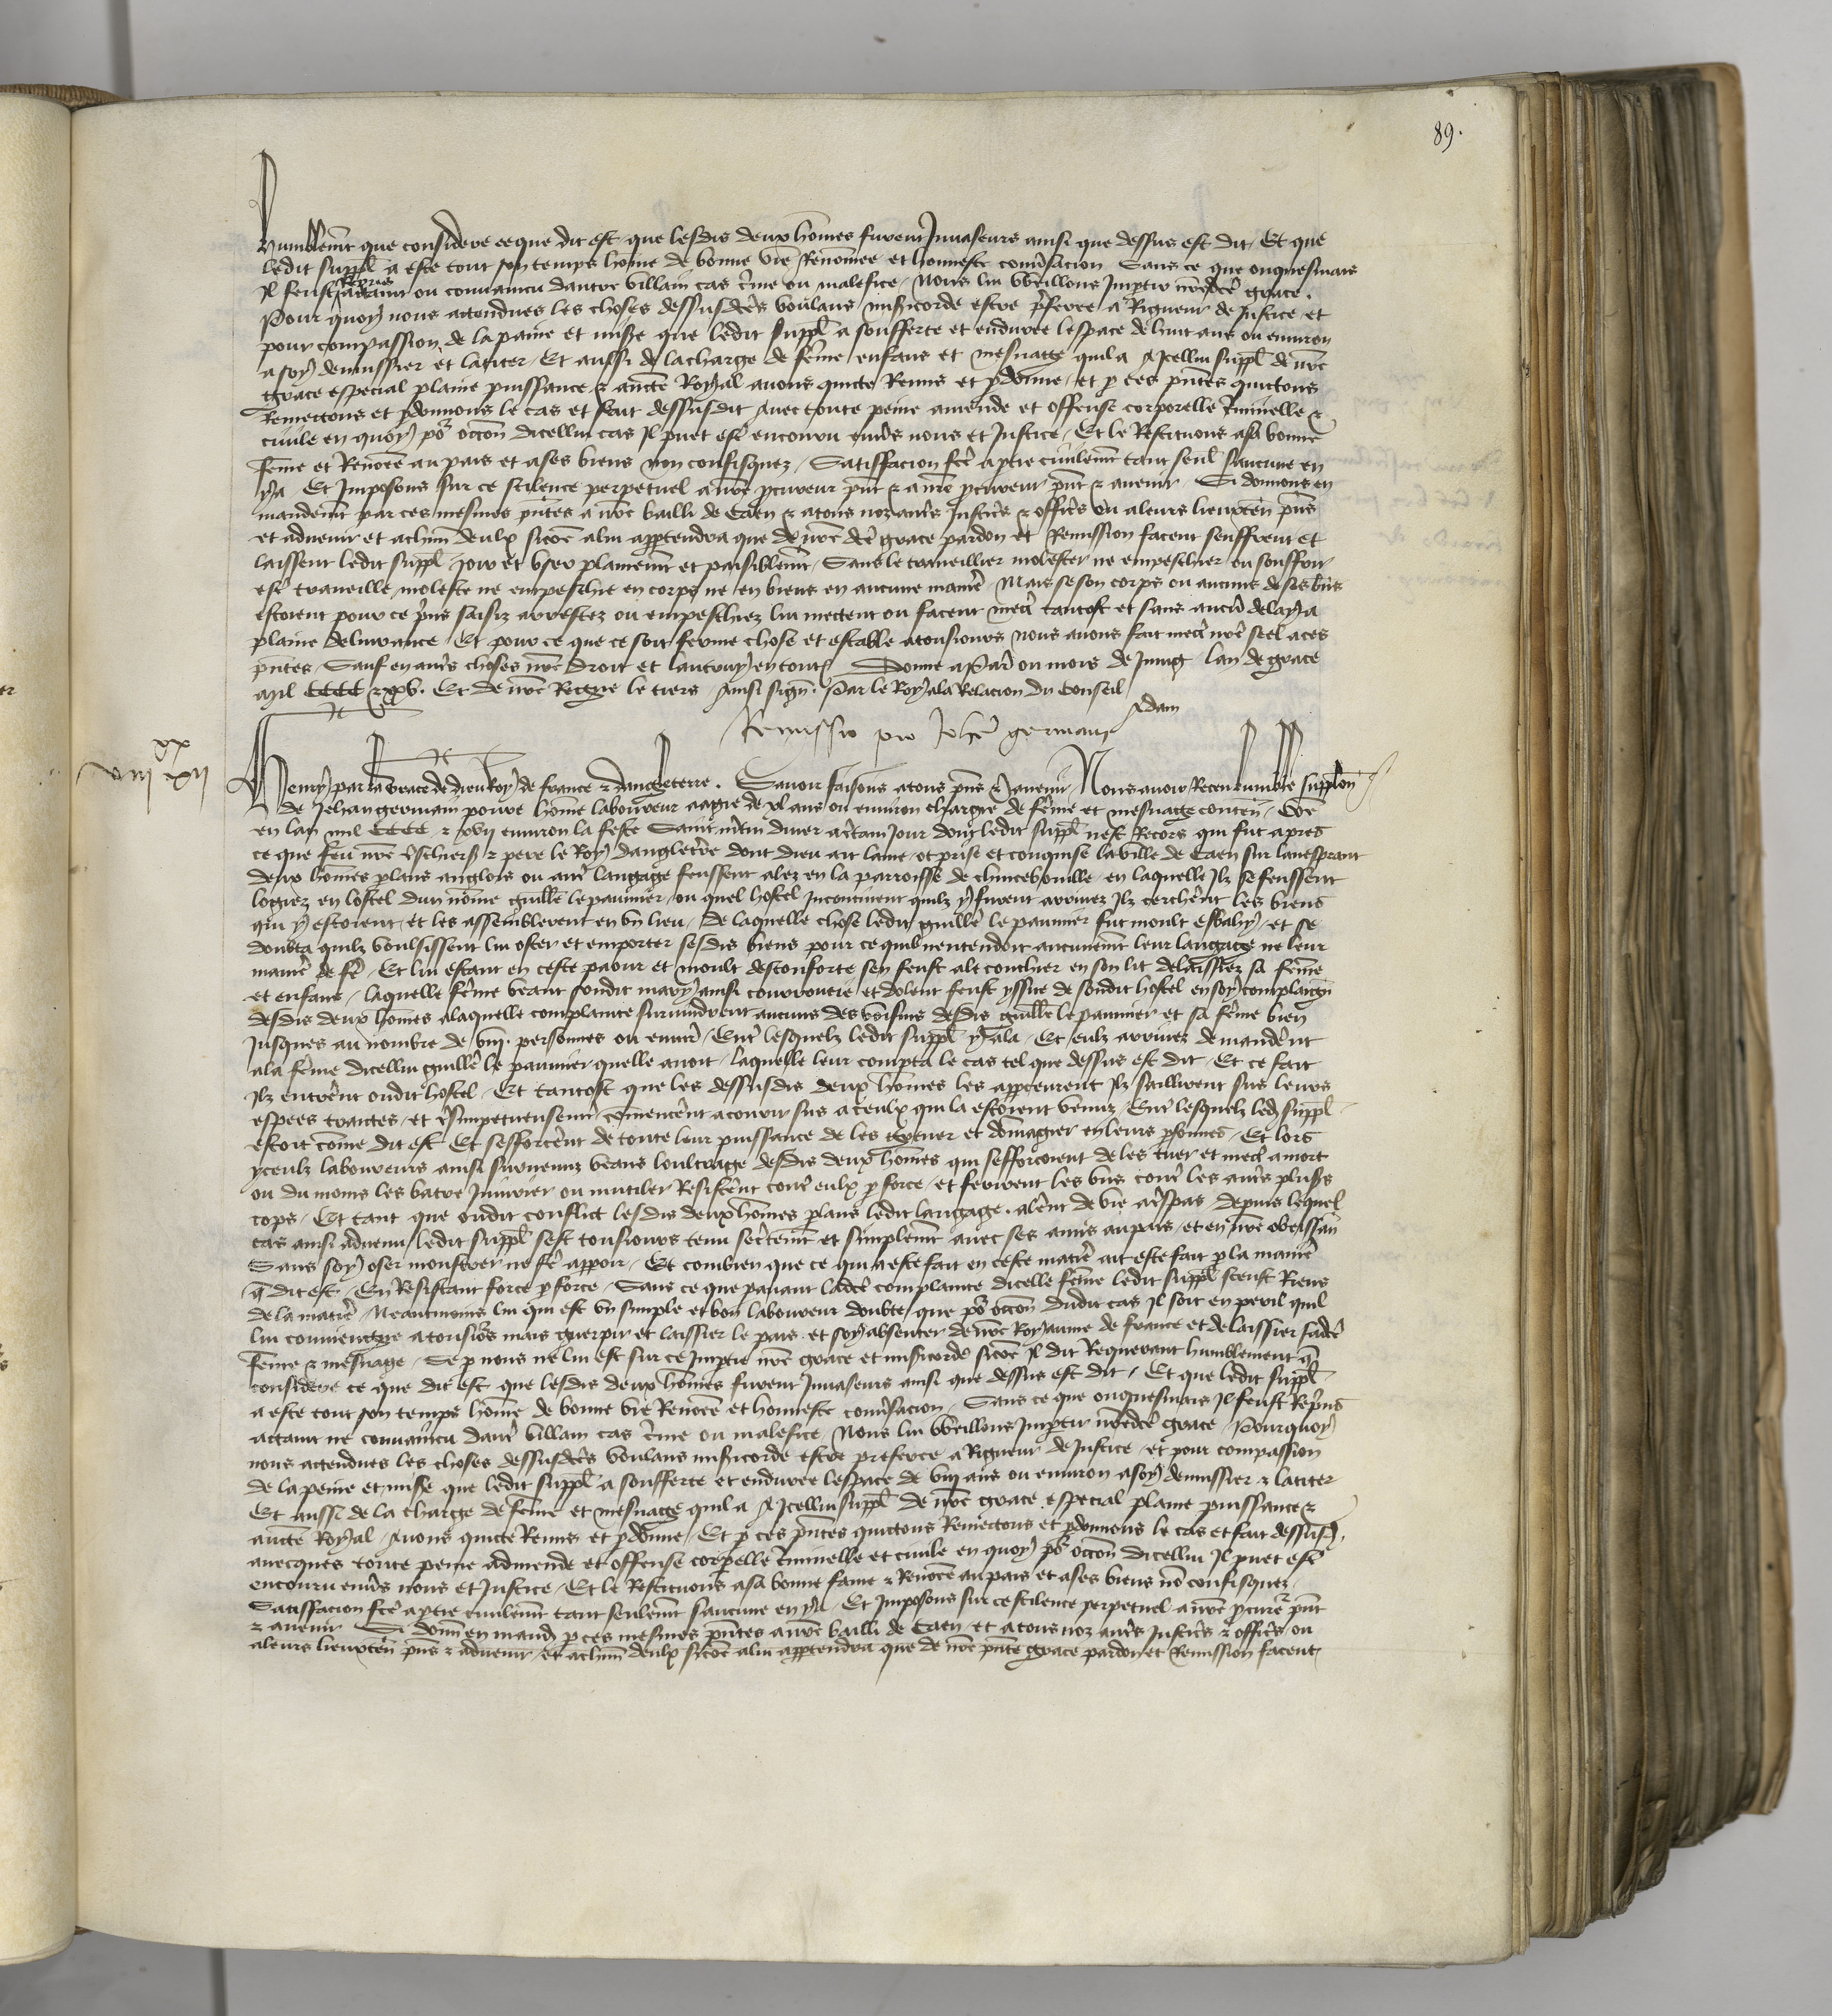 89.
humblemt que consideré ce que dit est que lesdis deux hōmes furent Inuaseurs ainsi que dessus est dit / Et que
ledit suppl a esté tout son temps hōme de bonne vie Renōmee et honneste conūsacion Sans ce que onquesmais
Il feust Reprins actaint ou conuaincu dautre villain cas crīme ou malefice / Nous lui vueillons Impartir nredcē grace .
Pour quoy nous attendues les choses dessusdcēs voulans misericorde estre preferee a Rigueur de Justice et
pour compassion de la paine et misere que ledit suppl a soufferte et enduree lespace de huit ans ou enuiron
a soy demussier et latiter Et aussi de la charge de fēme enfans et mesnaige quil a A Icellui suppl de nrē
grace especial plaine puissance & auctē Royal auons quicté Remis et pdonné / et p ces pñtes quictons
Remectons et pdonnons le cas et fait dessusdit Auec toute peine amende et offense corporelle crīminelle &
ciuile en quoy por occon dicellui cas Il puet estre encouru enuērs nous et Justice / Et le Restituons a sa bonne
fāme et Renōmē au pais et a ses biens non confisquez / Satisfacion fcē a ptie ciuilemt tant seul saucune en
y a Et Imposons sur ce scilence perpetuel a nrē pcureur pñt & auenir . Si donnons en
mandemt par ces mesmes pñtes a nrē bailli de Caen & a tous noz autrēs Justicrēs & officrēs ou a leurs lieuxten pñs
et aduenir et a chūn deulx sicōe a lui appartendra que de nrē dcē grace pardon et Remission facent seuffrent et
laissent ledit suppl Joir et vser plainemt et paisiblemt / Sans le trauaillier molester ne empeschier ou souffrir
estre traueillé molesté ne empeschié en corps ne en biens en aucune manierē / Mais se son corps ou aucuns de ses biēs
estoient pour ce pris saisiz arrestez ou empeschiez lui mectent ou facent mectrē tantost et sans aucū delay a
plaine deliurance / Et pour ce que ce soit ferme chose et estable a tousiours nous auons fait mectrē nrē seel a ces
pñtes / Sauf en autrēs choses nrē droit et lautruy en toutes Donné a Paris ou mois de Juing lan de grace
Mil CCCC xxv . Et de nrē Regne le tiers / Ainsi signé . Par le Roy a la Relacion du Conseil
Adam
Remissio pro Johē germain
Henry par la grace de dieu Roy de france & Dangleterre . Sauoir faisons a tous pñs & a auenir / Nous auoir Receu lumble supplon
de Jehan germain poure hōme laboureur aagié de xl ans ou enuiron chargié de fēme et mesnaige conten / Cōe
en lan mil CCCC & xvij enuiron la feste Saint mrtīn diuer a certain Jour dont ledit suppl nest Recors qui fut apres
ce que feu nrē treschier sr & pere le Roy dangleterre dont dieu ait lame / ot prise et conquise la ville de Caen sur lauesprant
deux hōmes plans anglois ou autrē langage feussent alez en la parroisse de chinceboville / en laquelle Ilz se feussent
logiez en lostel dun nōmé guillē le paumier / ou quel hostel Incontinent quilz y furent arriuez Ilz cerchērent les biens
qui y estoient / et les assemblerent en vn lieu / de laquelle chose ledit guillē le paumier fut moult esbahy / et se
doubta quilz voulsissent lui oster et emporter sesdis biens pour ce quil nentendoit aucunemt leur langage ne leur
manierē de fē / Et lui estant en ceste paour et moult desconforté sen feust alé couchier en son lit delaissiez sa fēme
et enfans / laquelle fēme veant sondit mary ainsi courroucié et dolent feust yssue de sondit hostel en soy complaign
desdis deux hōmes a laquelle complainte suruindrent aucuns des voisins desdis guillē le paumier et sa fēme bien
Jusques au nombre de viij . personnes ou enuirō / Entrē lesquelz ledit suppl y ala / Et eulz arriuez demandērēt
a la fēme dicellui guillē le paumier quelle auoit / laquelle leur compta le cas tel que dessus est dit / Et ce fait
Ilz entrērent oudit hostel / Et tantost que les dessusdis deux hōmes les appceurent Ilz saillirent sus leurs
espees traictes / et tresimpetueusemt cōmencērent a courir sus a ceulx qui la estoient venuz / Entrē lesquelz led suppl
estoit cōme dit est Et sefforcērent de toute leur puissance de les tuer et dōmagier en leurs psonnes / Et lors
yceulz laboureurs ainsi suruenuz veans loultrage desdis deux hōmes qui sefforcoient de les tuer et mectrē a mort
ou du moins les batre Iniurier ou mutiler Resistērent contrē eulx p force / et ferirent les vns contrē les autrēs plusrs
cops / Et tant que oudit conflict lesdis deux hōmes plans ledit langage . alērent de vie a trespas / depuis lequel
cas ainsi aduenu ledit suppl sest tousiours tenu secretemt et simplemt auec ses amis au pais / et en nrē obeissan
Sans soy oser monstrer ne fē apparoir / Et combien que ce qui a esté fait en ceste matierē ait esté fait p la manierē
q̄ dit est / En Resistant force p force / Sans ce que pauant ladcē complainte dicelle fēme ledit suppl sceust Riens
de la matierē / Neantmoins lui qui est vn simple et bon laboureur doubte que por occon dudit cas Il soit en peril quil
lui conuiengne a tousiours mais guerpir et laissier le pais et soy absenter de nrē Royaume de france et delaissier sadcē
fēme & mesnage / Se p nous ne lui est sur ce Imparti nrē grace et misericorde sicōe Il dit Requerant humblement q̄
consideré ce que dit est que lesdis deux hōmes furent Inuaseurs ainsi que dessus est dit / Et que ledit suppl
a esté tout son temps hōme de bonne vie Renōmē et honneste conūsacion / Sans ce que onquesmais Il feust Reprins
actaint ne conuaincu dautrē villain cas crīme ou malefice / Nous lui vueillons Impartir nredcē grace / Pourquoy
nous attendues les choses dessusdcēs voulans misericorde estre preferee a Rigueur de Justice et pour compassion
de la peine et misere que ledit suppl a soufferte et enduree lespace de viij ans ou enuiron a soy demussier & latiter
Et aussi de la charge de fēme et mesnaige quil a A Icellui suppl de nrē grace especial plaine puissance &
auctē Royal / Auons quicté Remis et pdonné / Et p ces pñtes quictons Remectons et pdonnons le cas et fait dessusd .
auecques toute peine admende et offense corpelle crīminelle et ciuile en quoy por occon dicellui Il puet estre
encouru enuērs nous et Justice / Et le Restituons a sa bonne fame & Renōmē au pais et a ses biens nō confisquez .
Satisfacion fcē a ptie ciuilemt tant seulemt saucune en y a / Et Imposons sur ce scilence perpetuel a nrē pcureur pñt
& auenir Si donn en mand p ces mesmes pñtes a nrē bailli de Caen / et a tous noz autrēs Justicrēs & officrēs / ou
a leurs lieuxten pñs & aduenir / et a chūn deulx sicōe a lui appartendra que de nrē pñte grace pardon et Remission facent